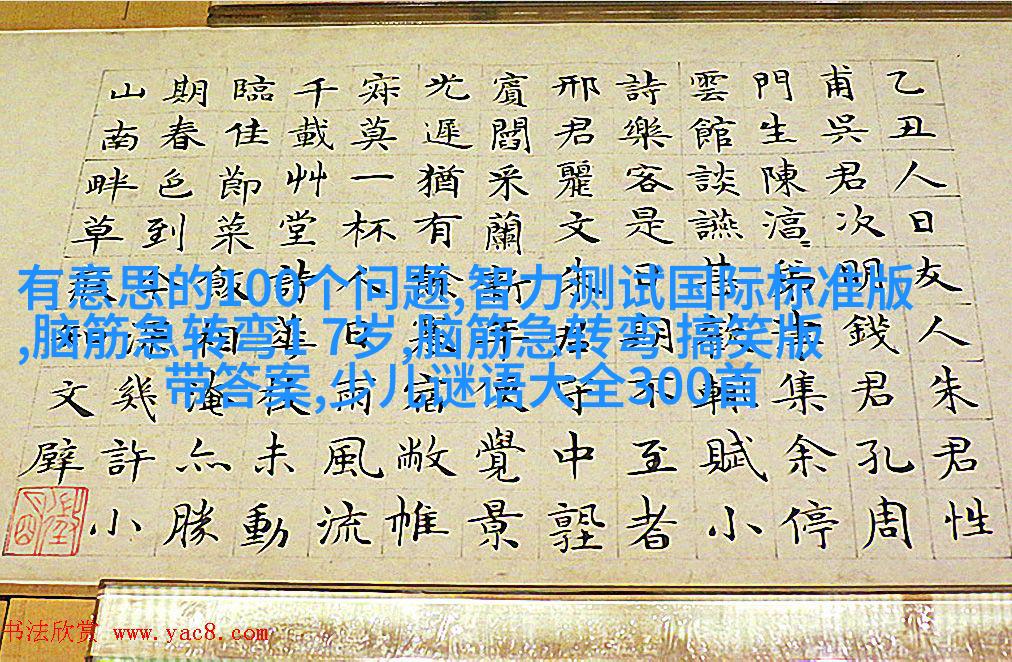 有意思的100个问题,智力测试国际标准版
,脑筋急转弯1 7岁,脑筋急转弯 搞笑版
带答案,少儿谜语大全300首
乙丑人日友人朱君性
甫吳君次明錢君孔周
門生陳集余停
雲館談讌輔賦小
詩樂客是日期不至者
邢君麗文朱君守中
賓蘭覺景
光遲猶有餘寒宿敝帷
寂莫一杯人日雨風流
千載艸堂詩未動
臨佳節菜飯相淹亦勝
期春色到憑幾許小
山南畔草文壁
书法欣赏 www.yac8.com